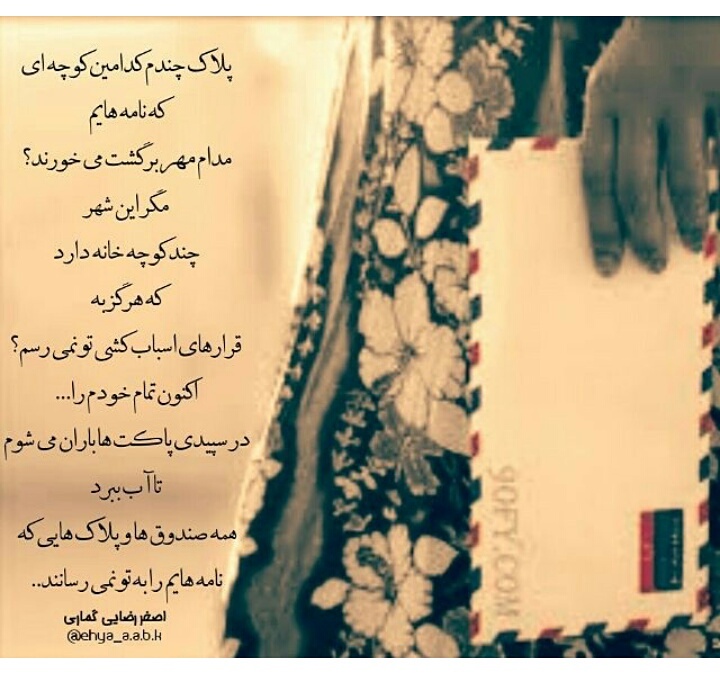 پلاک چندم کدامین کوچه ای
که نامه هایم
مدام مهر برگشت می خورند؟
مگر این شهر
چند کوچه خانه دارد
که هرگز به
قرارهای اسباب کشی تو نمی رسم؟
اکنون تمام خودم را...
در سپیدی پاکت ها باران می شوم
تا آب ببرد
همه صندوق ها و پلاک هایی که
نامه هایم را به تو نمی رسانند..
اصغر رضایی گماری
@ehya_a.a.b.k
90FY.COM